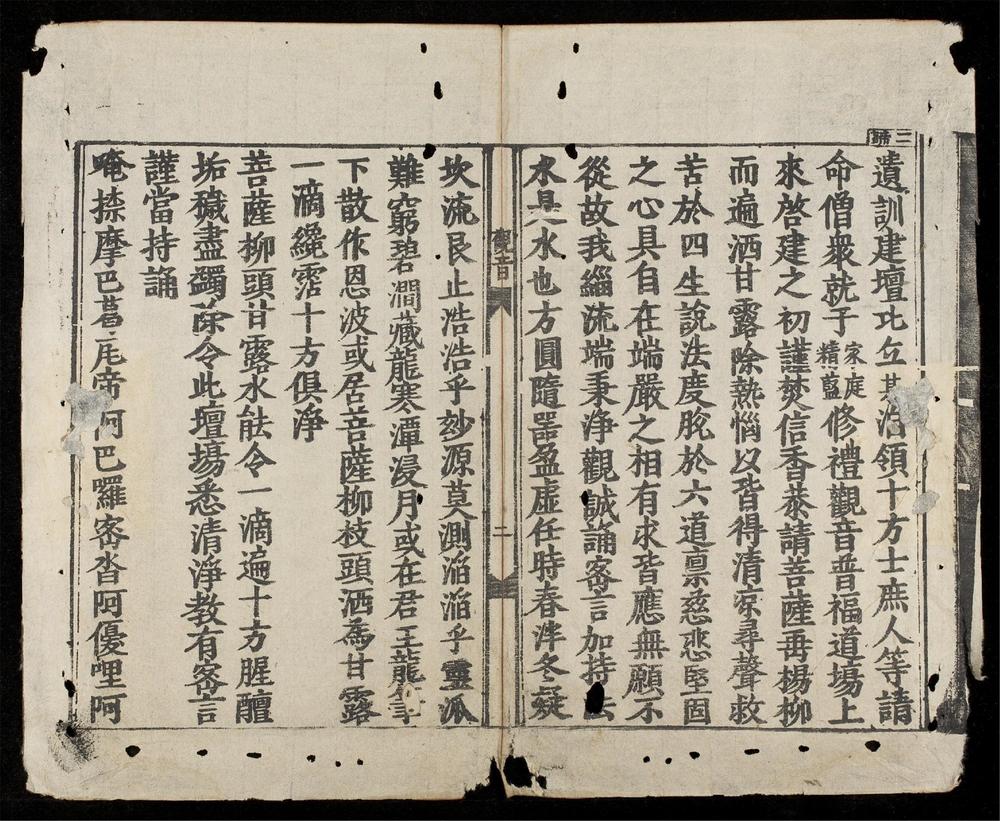 遺訓建壇比丘某洎領十方士庶人等請
命僧衆就于家庭精藍修禮觀音普福道場上
來啓建之初謹焚信香恭請菩薩再楊柳
而遍洒甘露除熱惱以皆得清凉尋聲救
苦於四生說法度脫於六道禀慈悲堅固
之心具自在端嚴之相有求皆應無願不
從故我緇流端秉浄觀誠誦密言加持法
水是水也方圓隨器盈虛任時春泮冬凝
觀音
二
坎流艮止浩浩乎玅源莫測滔滔乎靈派
難窮碧澗藏龍寒潭浸月或在君王龍筆
下散作恩波或居菩薩柳枝頭洒為甘露
一滴纔霑十方俱淨
菩薩柳頭甘露水能令一滴遍十方腥膻
垢穢盡蠲除令此壇場悉清淨教有密言
謹當持誦
唵捺摩巴葛斡帝阿巴囉密沓阿優哩阿